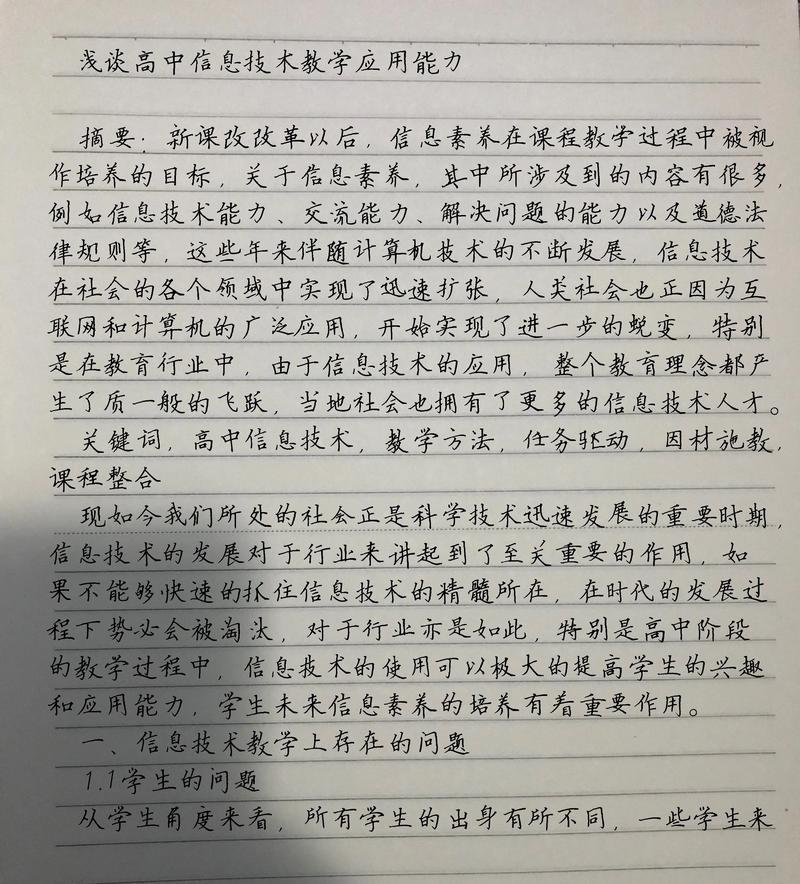 浅谈高中信息技术教学应用能力
摘要：新课改改革以后，信息素养在课程教学过程中被视
作培养的目标，关于信息素养，其中所涉及到的内容有很多，
例如信息技术能力、交流能力、解决问题的能力以及道德法
律规则等，这些年来伴随计算机技术的不断发展，信息技术
在社会的各个领域中实现了迅速扩张，人类社会也正因为互
联网和计算机的广泛应用，开始实现了进一步的蜕变，特别
是在教育行业中，由于信息技术的应用，整个教育理念都产
生了质一般的飞跃，当地社会也拥有了更多的信息技术人才。
关键词，高中信息技术，教学方法，任务驱动，因材施教，
课程整合
现如今我们所处的社会正是科学技术迅速发展的重要时期，
信息技术的发展对于行业来讲起到了至关重要的作用，如
果不能够快速的抓住信息技术的精髓所在，在时代的发展过
程下势必会被淘汰，对于行业亦是如此，特别是高中阶段
的教学过程中，信息技术的使用可以极大的提高学生的兴趣
和应用能力，学生未来信息素养的培养有着重要作用。
一、信息技术教学上存在的问题
1.1学生的问题
从学生角度来看，所有学生的出身有所不同，一些学生来